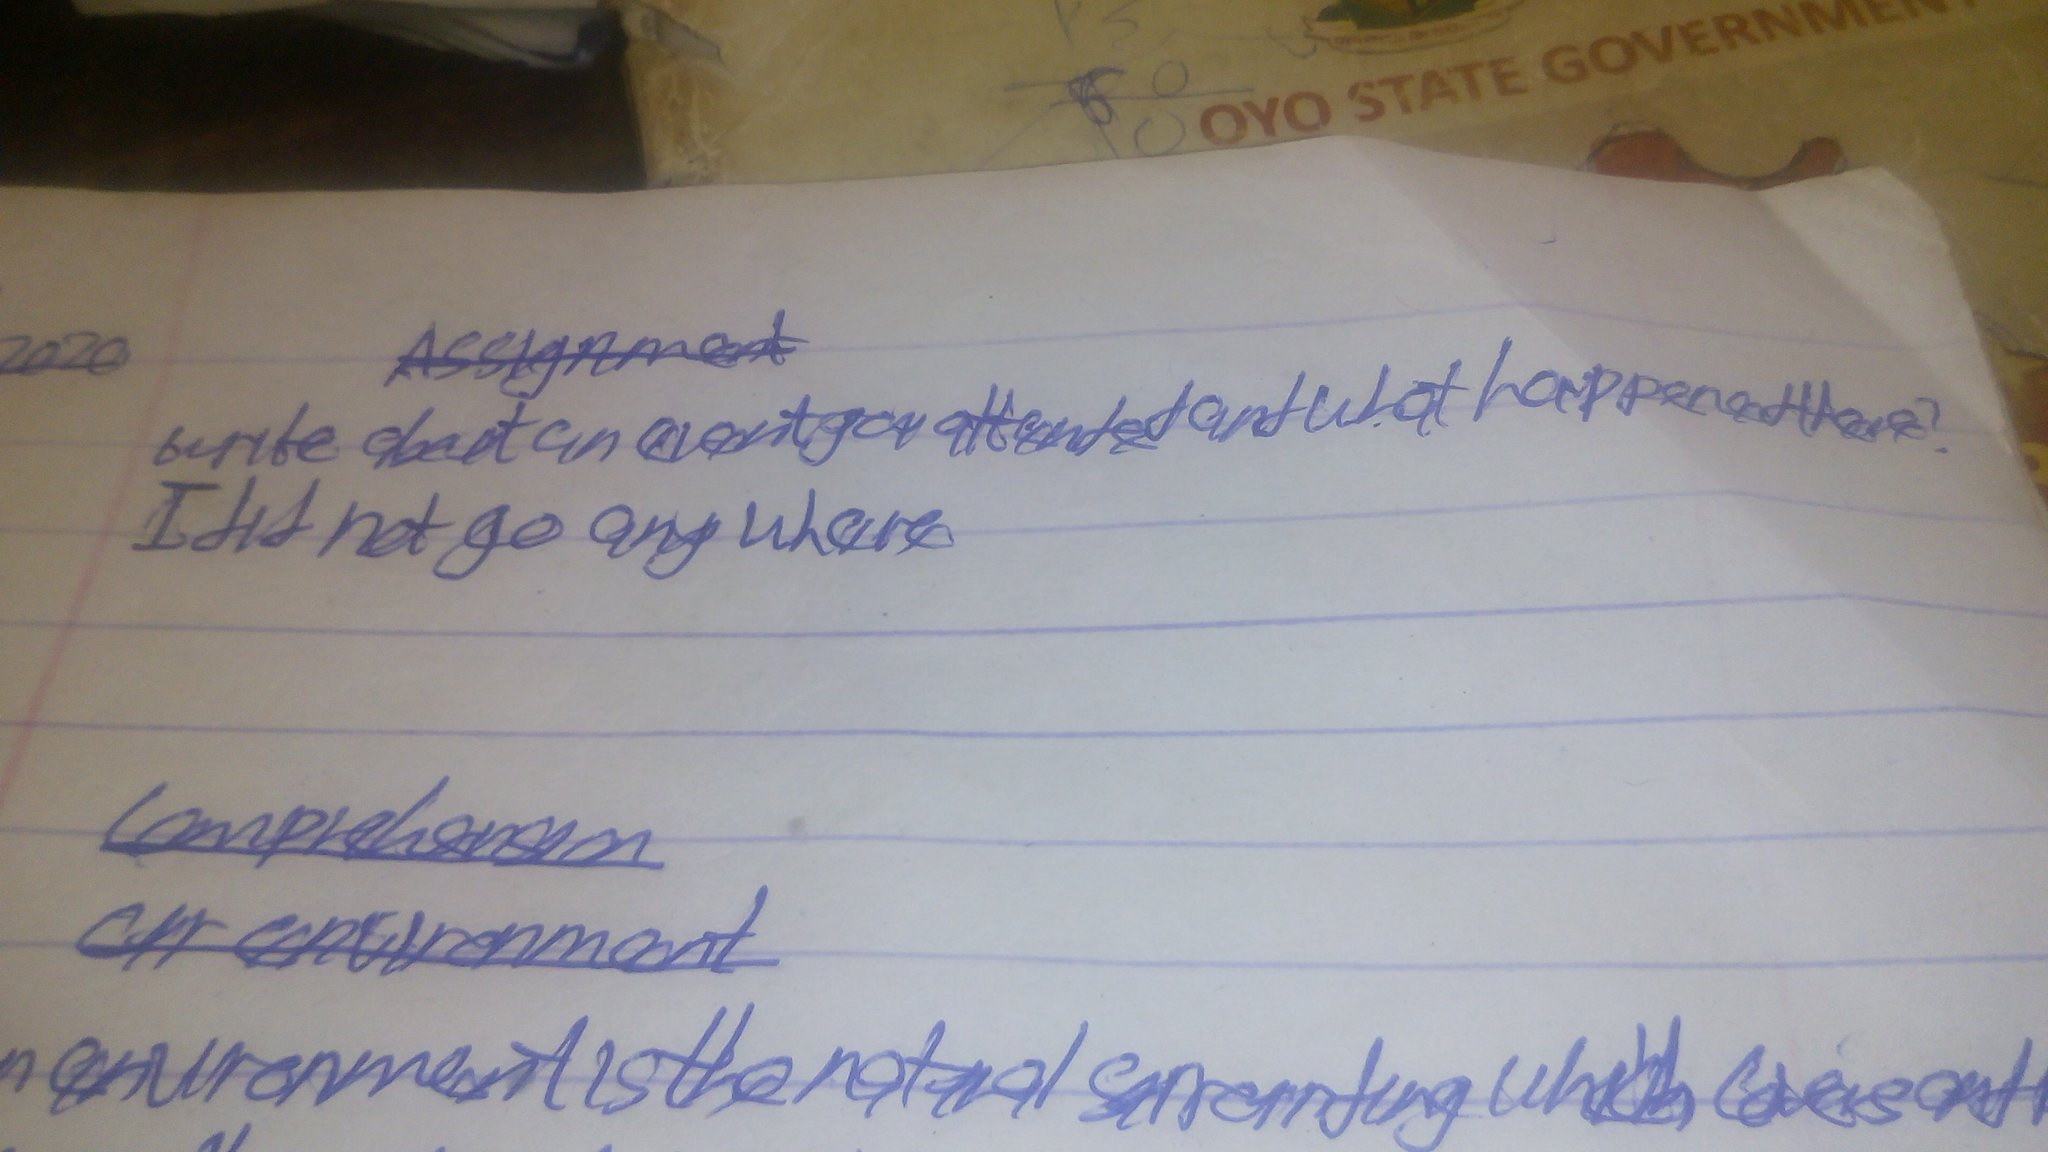 OYO STATE GOVERNMENT
2020
Assignment
write about an event you attended and what happened there?
I did not go any where
Comprehension
Our environment
n environment is the natural surrounding which covers